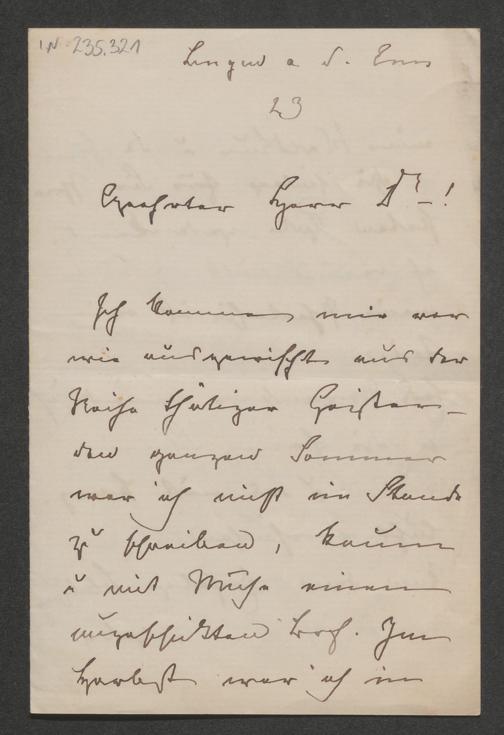 IN 235.321
a. d. Enns
23
Geehrter Herr Dr!
Ich komme mir vor
wie ausgewischt aus der
Reihe thätiger Geister –
den ganzen Sommer
war ich nicht im Stande
zu schreiben, kaum
u mit Mühe einen
ungeschickten Brief. Im
Herbst war ich in